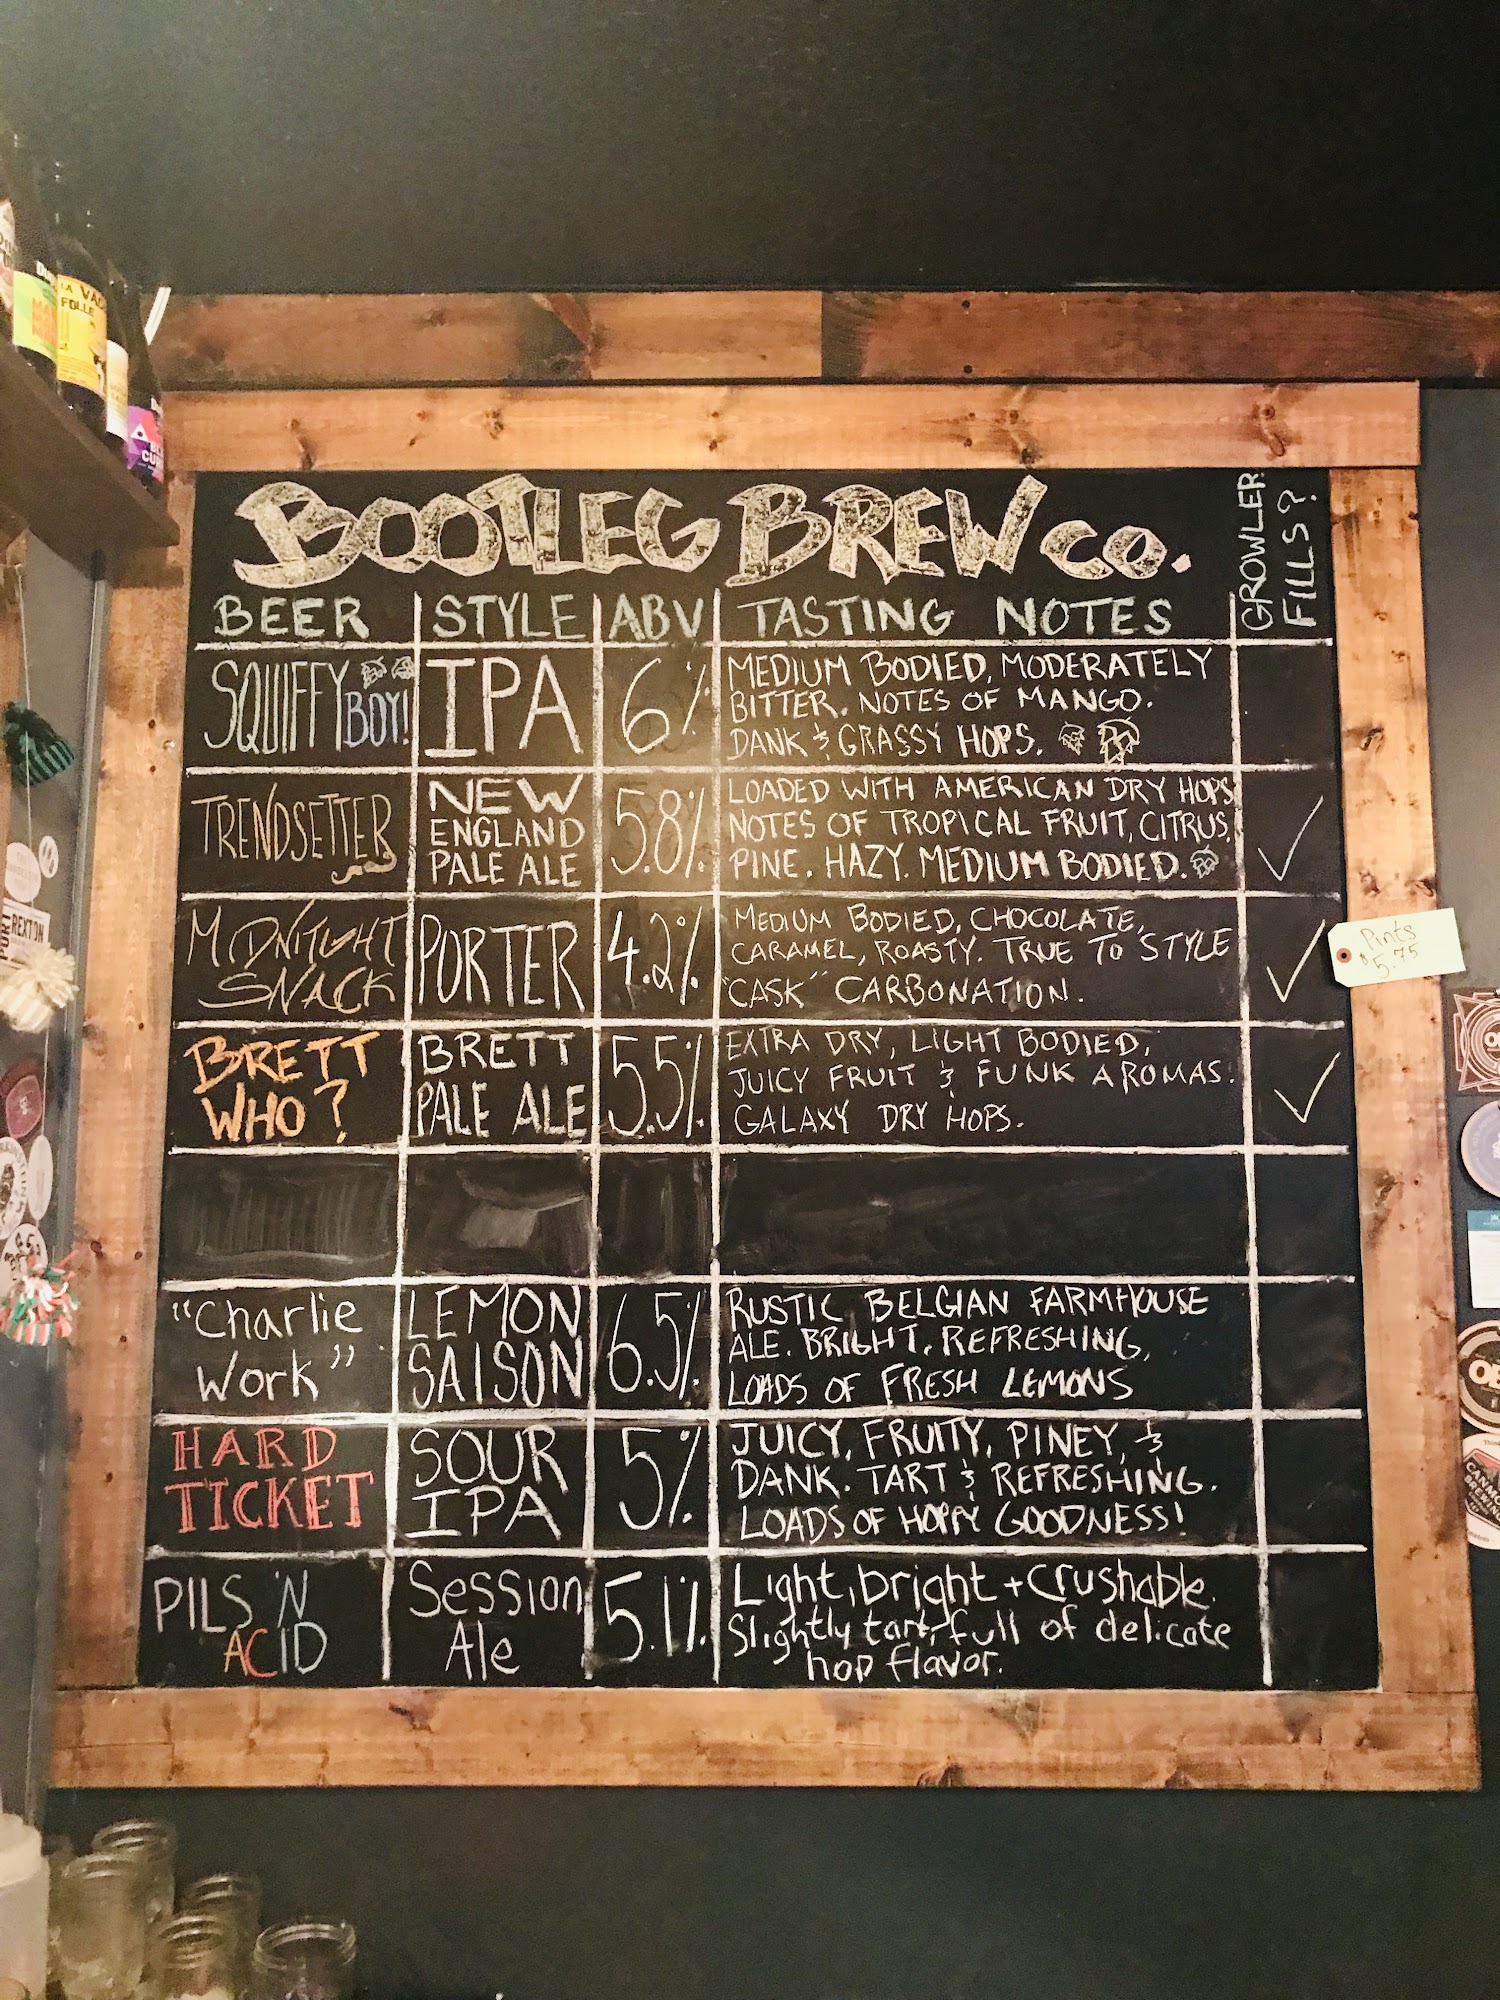 BOOTLEG BREW CO.
GROWLER
FILLS?
BEER STYLE ABV TASTING NOTES
SQUIFFY BOY!
IPA
6%
MEDIUM BODIED, MODERATELY
BITTER. NOTES OF MANGO.
DANK & GRASSY HOPS.
TRENDSETTER
NEW
ENGLAND
PALE ALE
5.8%
LOADED WITH AMERICAN DRY HOPS
NOTES OF TROPICAL FRUIT, CITRUS,
PINE. HAZY. MEDIUM BODIED.
✓
MIDNITGHT
SNACK
PORTER
4.2%
MEDIUM BODIED, CHOCOLATE,
CARAMEL, ROASTY. TRUE TO STYLE
"CASK" CARBONATION.
✓
Pints
$5.75
BRETT
WHO?
BRETT
PALE ALE
5.5%
EXTRA DRY, LIGHT BODIED,
JUICY FRUIT & FUNK AROMAS.
GALAXY DRY HOPS.
✓
"Charlie
Work"
LEMON
SAISON
6.5%
RUSTIC BELGIAN FARMHOUSE
ALE. BRIGHT, REFRESHING,
LOADS OF FRESH LEMONS
HARD
TICKET
SOUR
IPA
5%
JUICY, FRUITY, PINEY, &
DANK. TART & REFRESHING.
LOADS OF HOPPY GOODNESS!
PILS 'N
ACID
Session
Ale
5.1%
Light, bright + crushable.
Slightly tart, full of delicate
hop flavor.
LA VACHE
FOLLE
REXTON